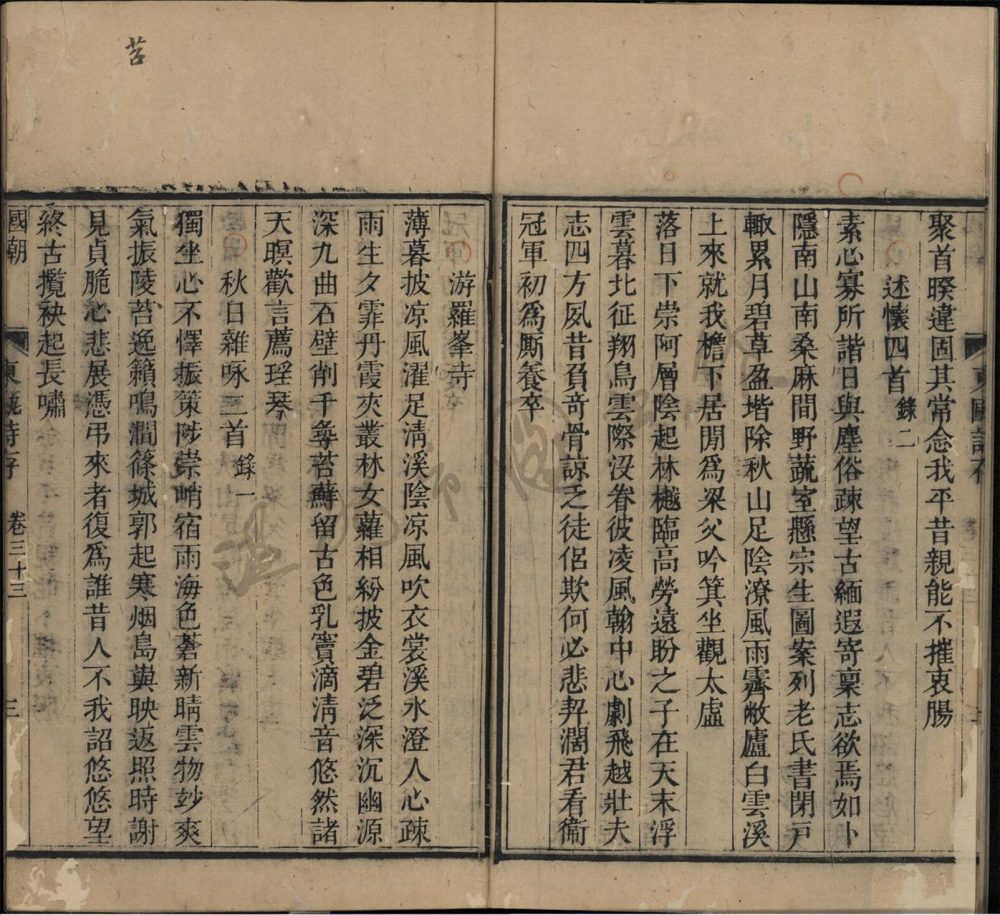 聚首暌違固其常念我平昔親能不摧衷腸
述懷四首 錄二
素心寡所諧日與塵俗疎望古緬遐寄稟志欲焉如卜
隱南山南桑麻間野蔬室懸宗生圖案列老氏書閉戸
輙累月碧草盈堦除秋山足陰潦風雨霽敝廬白雲溪
上來就我檐下居閒爲梁父吟箕坐觀太虛
落日下崇阿層陰起林樾臨高勞遠盼之子在天末浮
雲暮北征翔鳥雲際沒眷彼凌風翰中心劇飛越壯夫
志四方夙昔負奇骨諒之徒侶欺何必悲契濶君看衞
冠軍初爲厮養卒
游羅峯寺
薄暮披凉風濯足淸溪陰凉風吹衣裳溪水澄人心疎
雨生夕霏丹霞夾叢林女蘿相紛披金碧泛深沉幽源
深九曲石壁削千尋苔蘚留古色乳竇滴淸音悠然諸
天暝歡言薦瑶琴
秋日雜咏三首 錄一
獨坐心不懌振策陟崇峭宿雨海色蒼新晴雲物玅爽
氣振陵苕逸籟鳴澗篠城郭起寒烟島嶼映返照時謝
見貞脆心悲展憑弔來者復爲誰昔人不我詔悠悠望
終古攬袂起長嘯
國朝
東甌詩存 卷三十三 三
苕